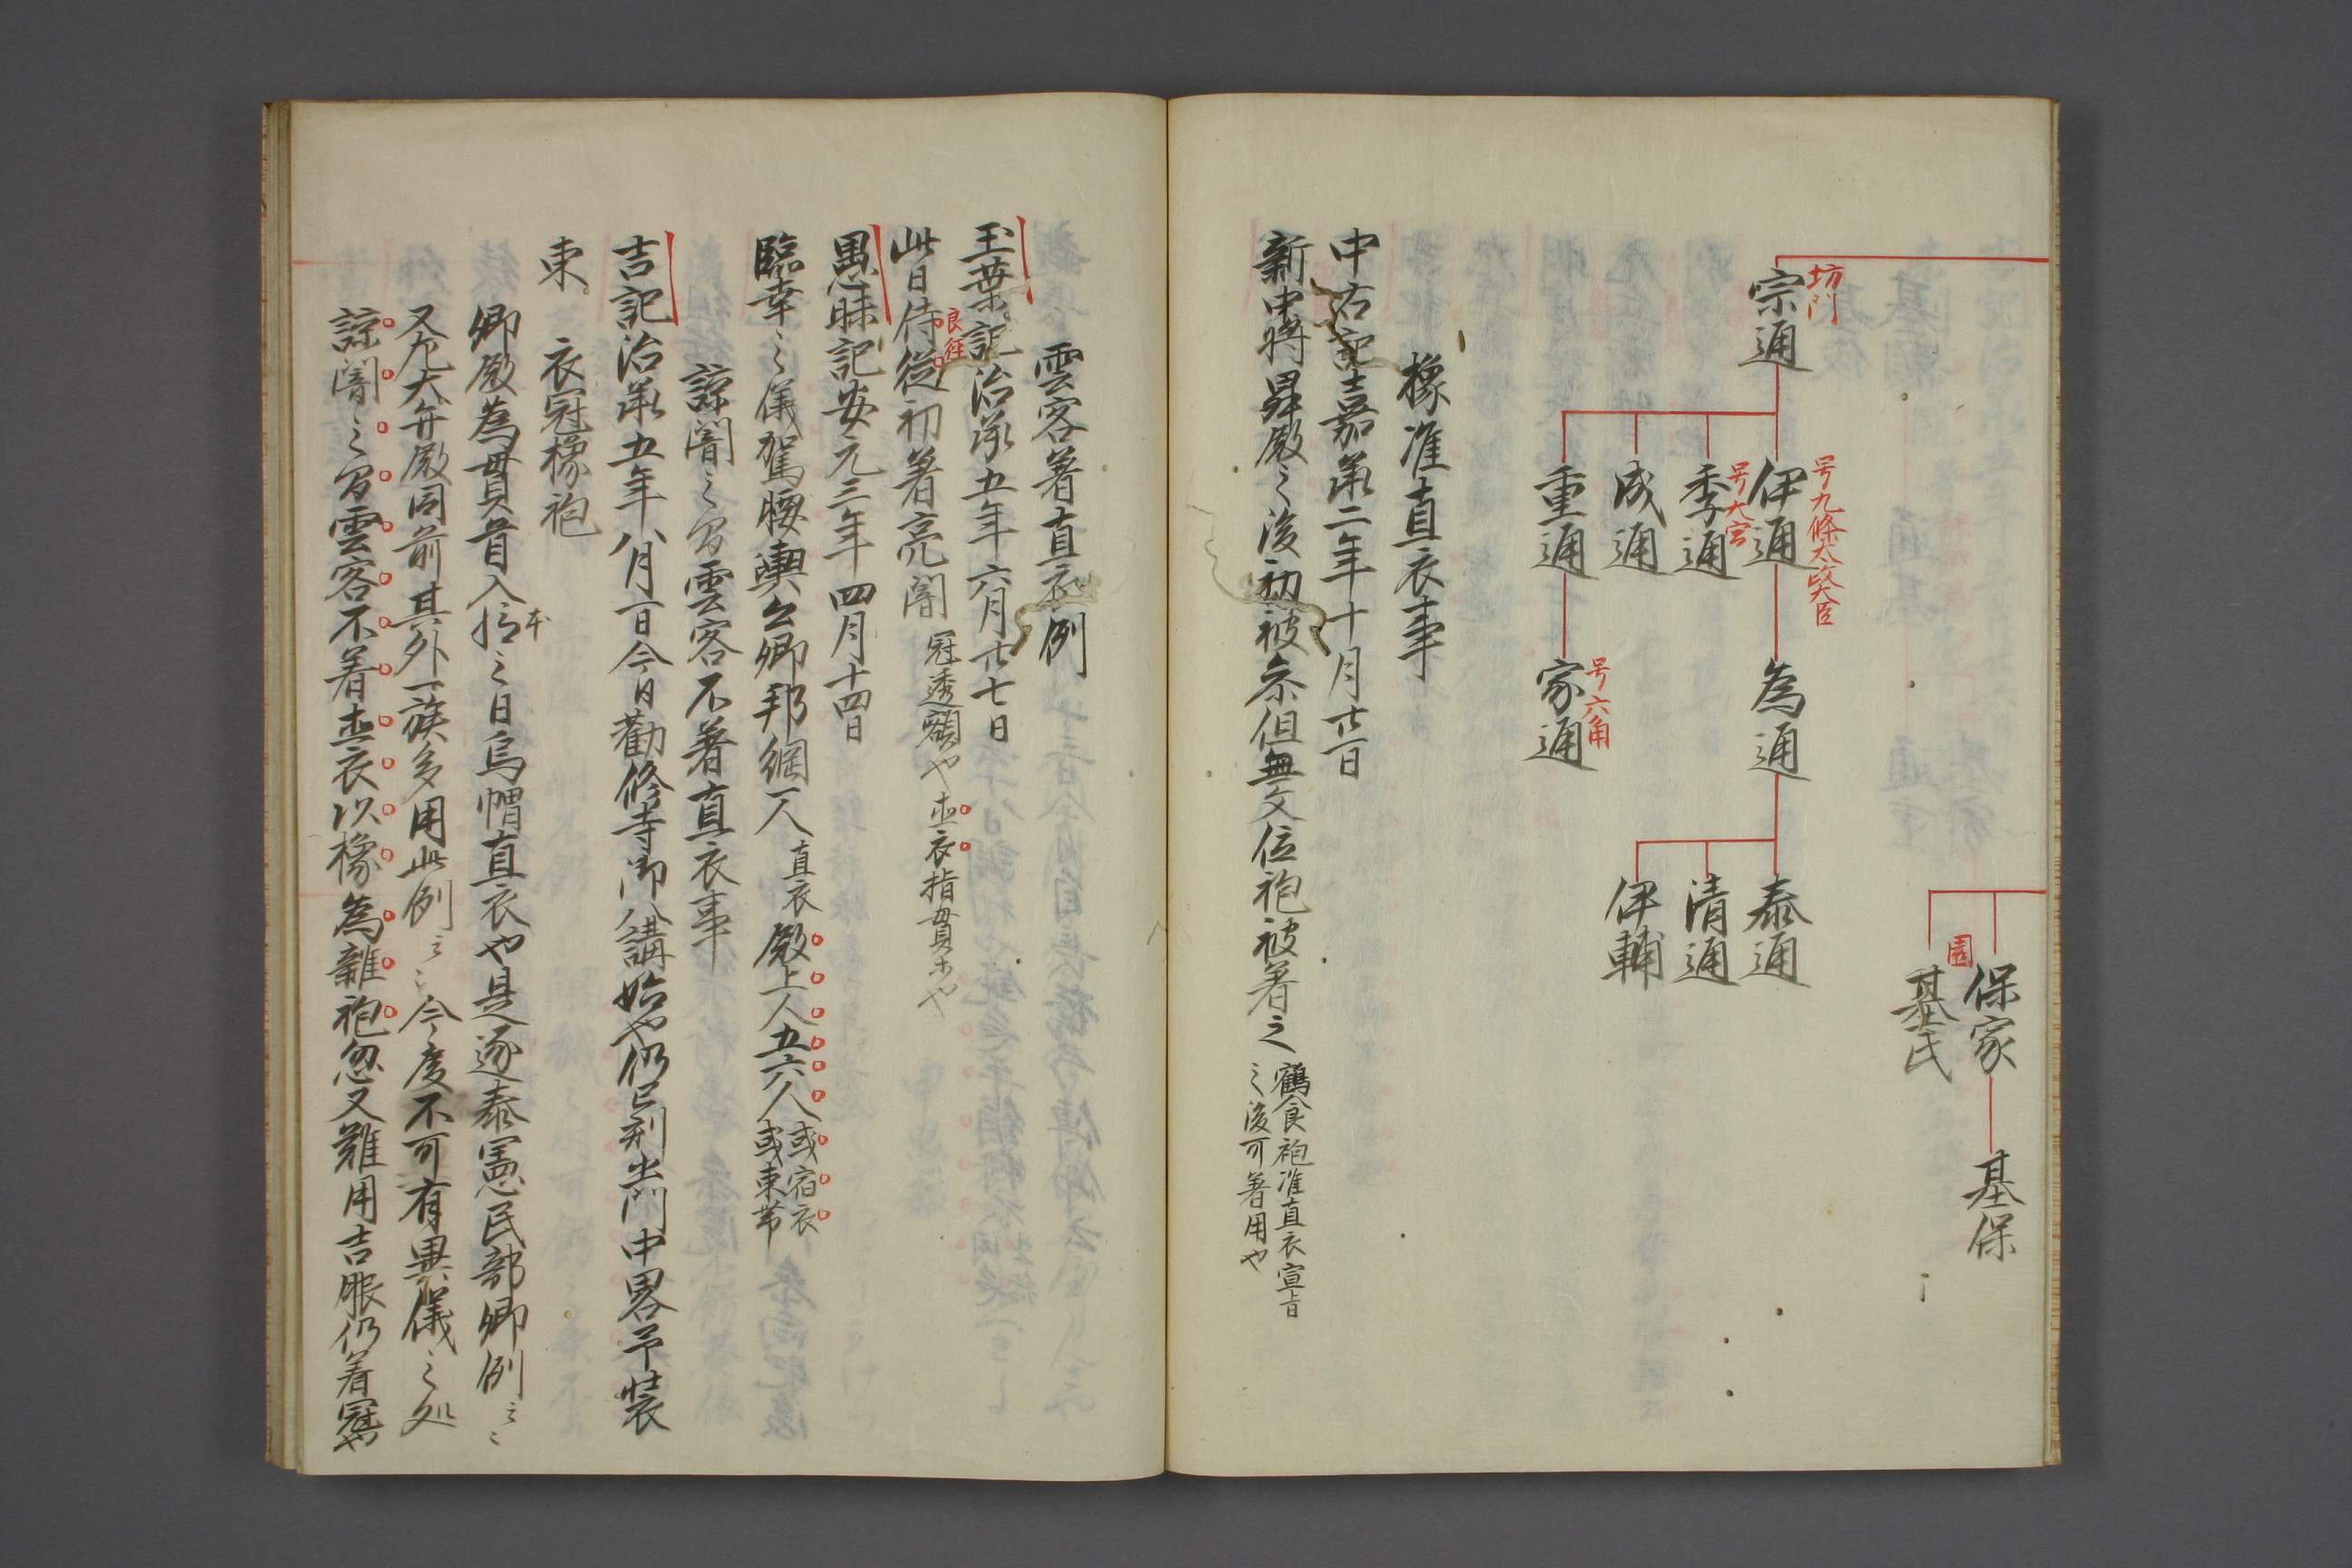 保家
基保
園
基氏
坊門
宗通
号九條太政大臣
伊通
為通
泰通
清通
伊輔
号大宮
季通
成通
重通
号六角
家通
橡准直衣事
中右記嘉承二年十月廿一日
新中将昇殿之後初被参但無文位袍被著之
鶴食袍准直衣宣旨
之後可著用也
雲客著直衣例
玉葉記治承五年六月廿七日
良経
此日侍従初著亮闇
冠透額也直衣指貫ホ也
愚昧記安元三年四月十四日
臨幸之儀駕腰輿公卿邦綱一人直衣殿上人五六人
或宿衣
或束帯
諒闇之間雲客不著直衣事
吉記治承五年八月一日今日勸修寺御八講始也仍巳剋出門中畧予装
束
衣冠橡袍
卿殿為貫首入
本
之日烏帽直衣也是逐泰憲民部卿例云々
又左大弁殿同前其外一族多用此例云々今度不可有異儀之処
諒闇之間雲客不着直衣以橡為雑袍忽又難用吉服仍着冠也